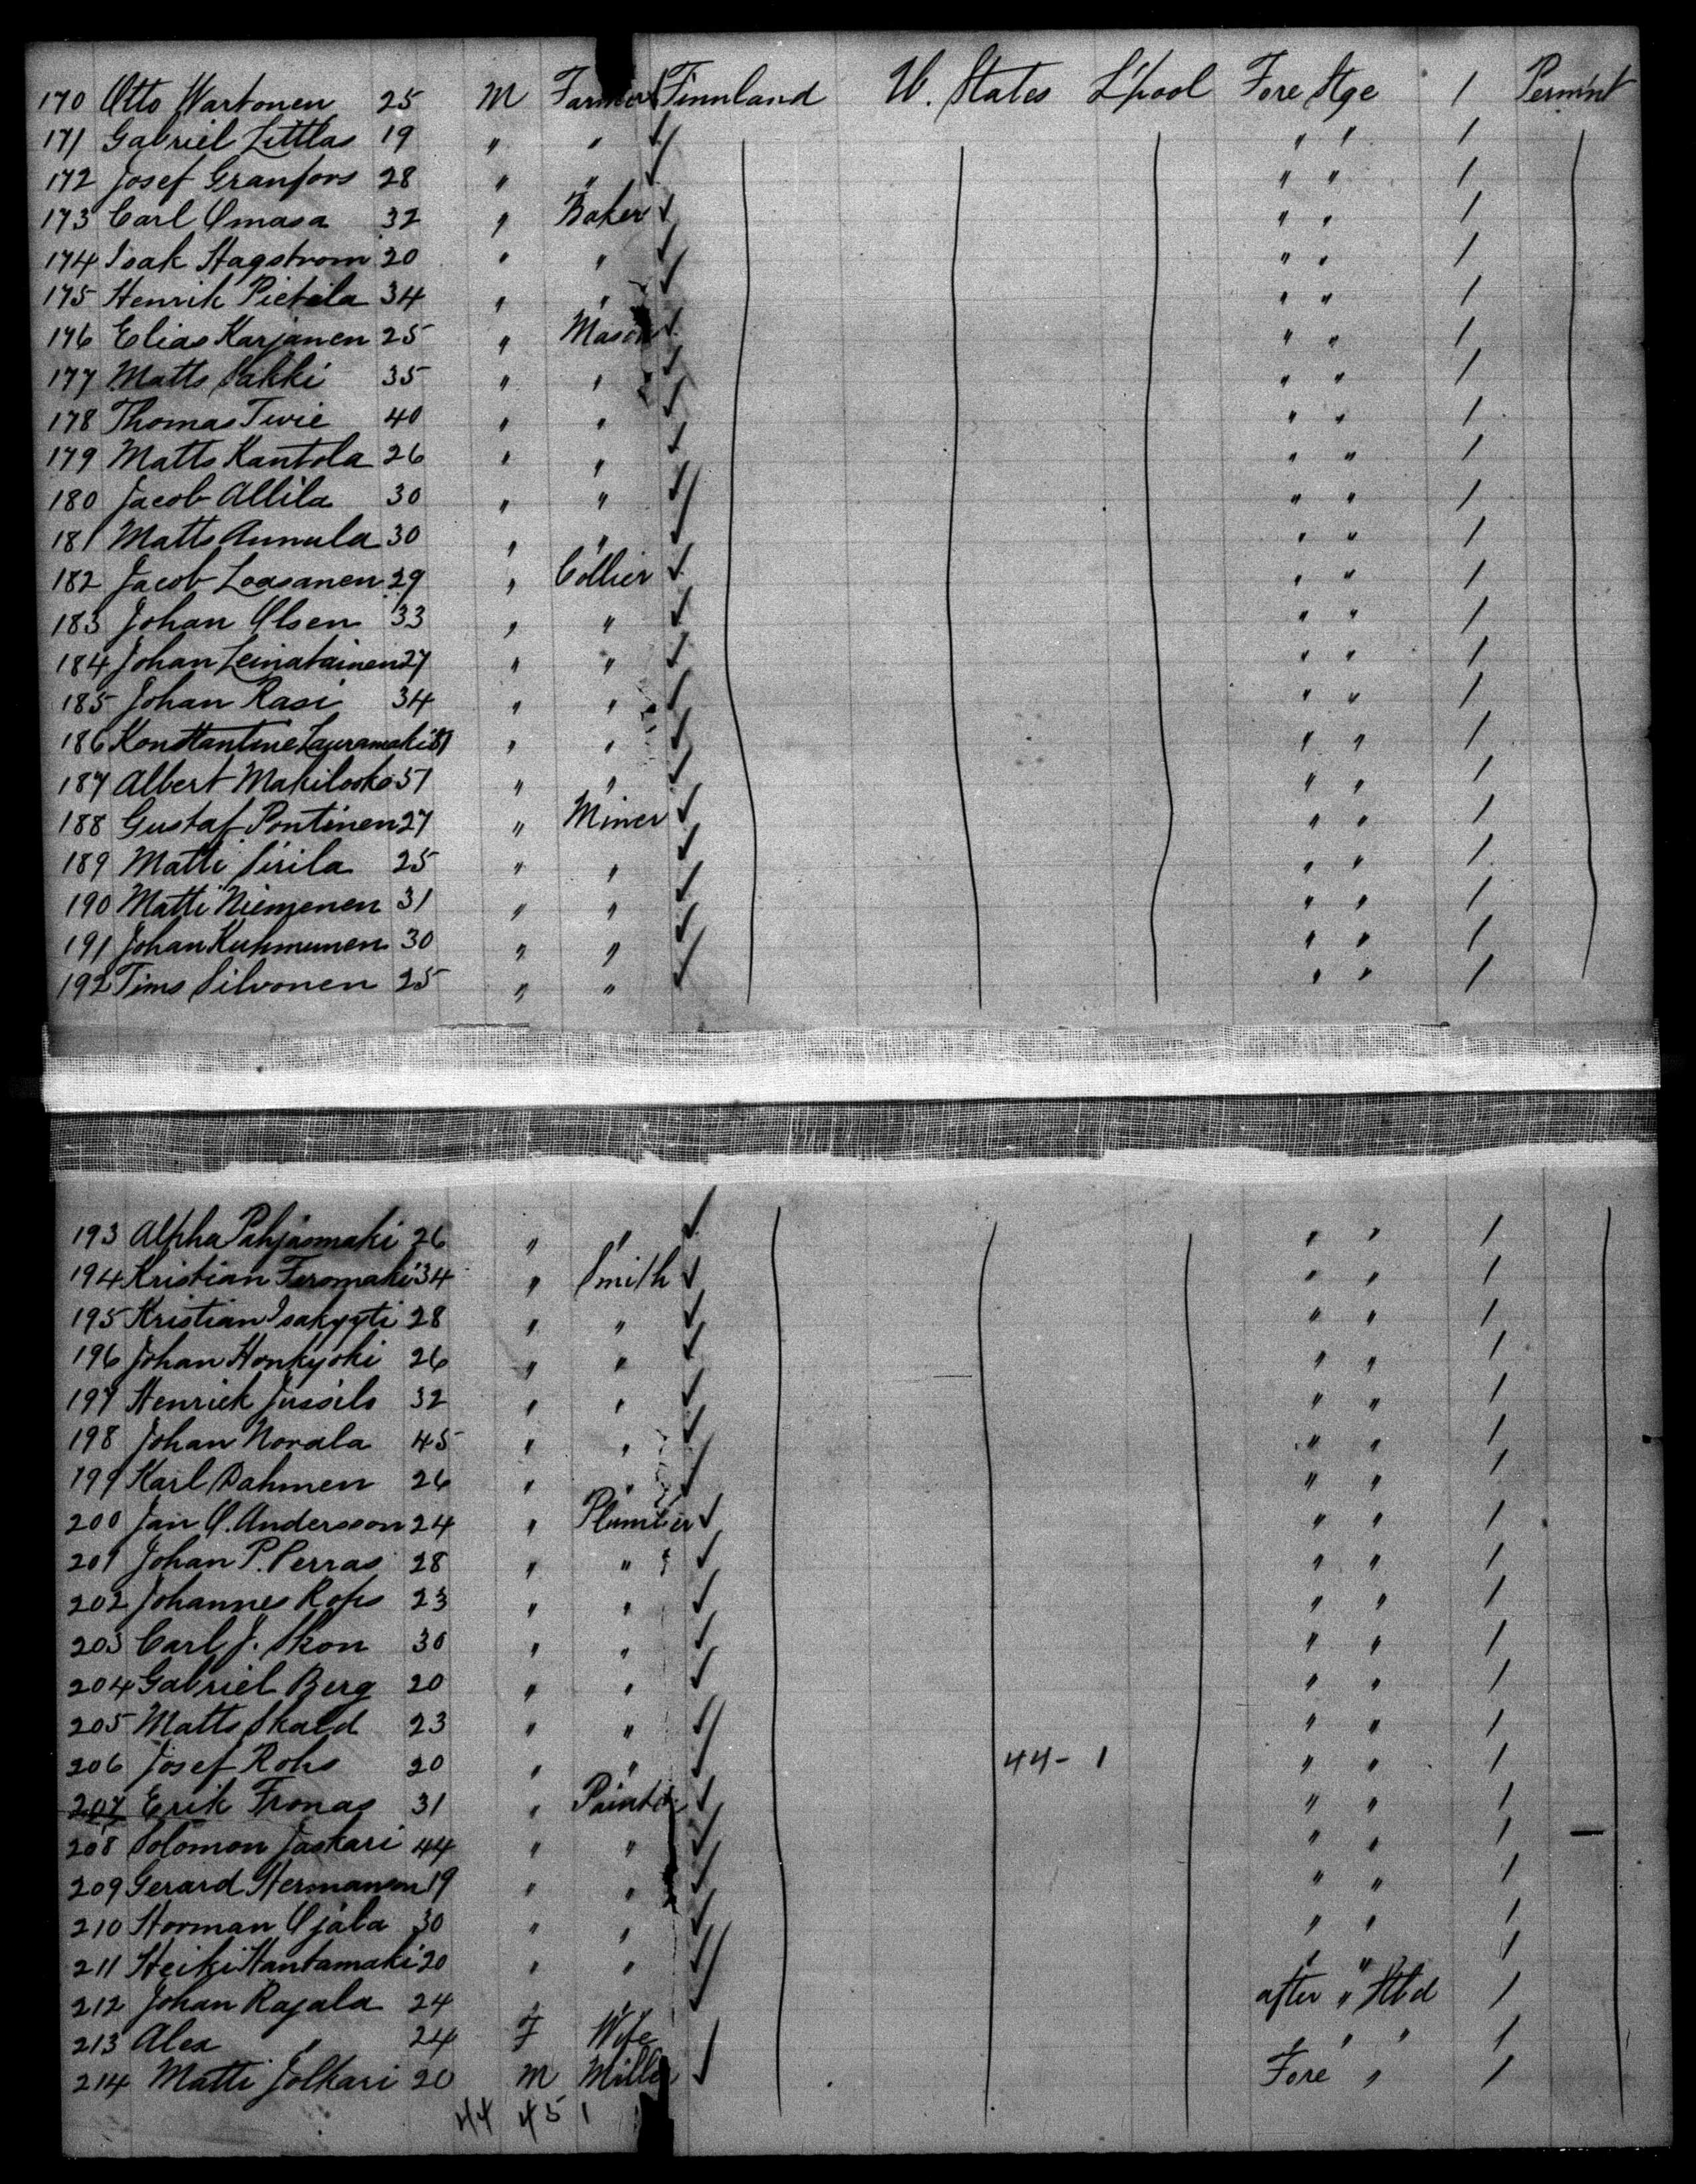 170 Otto Wartonen 25 M Farmer Finnland U. States L'pool Fore Stge 1 Permn't
171 Gabriel Littlas 19 " " " " 1
172 Josef Granfors 28 " " " " 1
173 Carl Omasa 32 " Baker " " 1
174 Isak Hagstrom 20 " " " " 1
175 Henrik Pietila 34 " " " " 1
176 Elias Karjanen 25 " Mason " " 1
177 Matts Sakki 35 " " " " 1
178 Thomas Twie 40 " " " " 1
179 Matts Kantola 26 " " " " 1
180 Jacob Allila 30 " " " " 1
181 Matts Annula 30 " " " " 1
182 Jacob Loasanen 29 " Collier " " 1
183 Johan Olsen 33 " " " " 1
184 Johan Leinatainen 27 " " " " 1
185 Johan Rasi 34 " " " " 1
186 Konstantine Lauramaki " " " " 1
187 Albert Makilooko 37 " " " " 1
188 Gustaf Pontinen 27 " Miner " " 1
189 Matti Sirila 25 " " " " 1
190 Matti Niemenen 31 " " " " 1
191 Johan Kuhmunen 30 " " " " 1
192 Tims Silvonen 25 " " " " 1
193 Alpha Pahjasmaki 26 " " " " 1
194 Kristian Feromaki 34 " Smith " " 1
195 Kristian Isakyyti 28 " " " " 1
196 Johan Honkyoki 26 " " " " 1
197 Henrick Jussils 32 " " " " 1
198 Johan Norala 45 " " " " 1
199 Karl Dahmen 26 " " " " 1
200 Jan O. Andersson 24 " Plumber " " 1
201 Johan P. Perras 28 " " " " 1
202 Johannes Rofs 23 " " " " 1
203 Carl J. Skon 30 " " " " 1
204 Gabriel Berg 20 " " " " 1
205 Matts Skald 23 " " " " 1
206 Josef Rohs 20 " " 44- 1 " " 1
207 Erik Fronas 31 " Painter " " 1
208 Solomon Jaskari 44 " " " " 1
209 Gerard Hermanson 19 " " " " 1
210 Horman Ojala 30 " " " " 1
211 Heiki Hantamaki 20 " " " " 1
212 Johan Rajala 24 " " after " Stbd 1
213 Alex " 24 F Wife " " 1
214 Matti Jolkari 20 M Miller Fore " 1
44 45 1